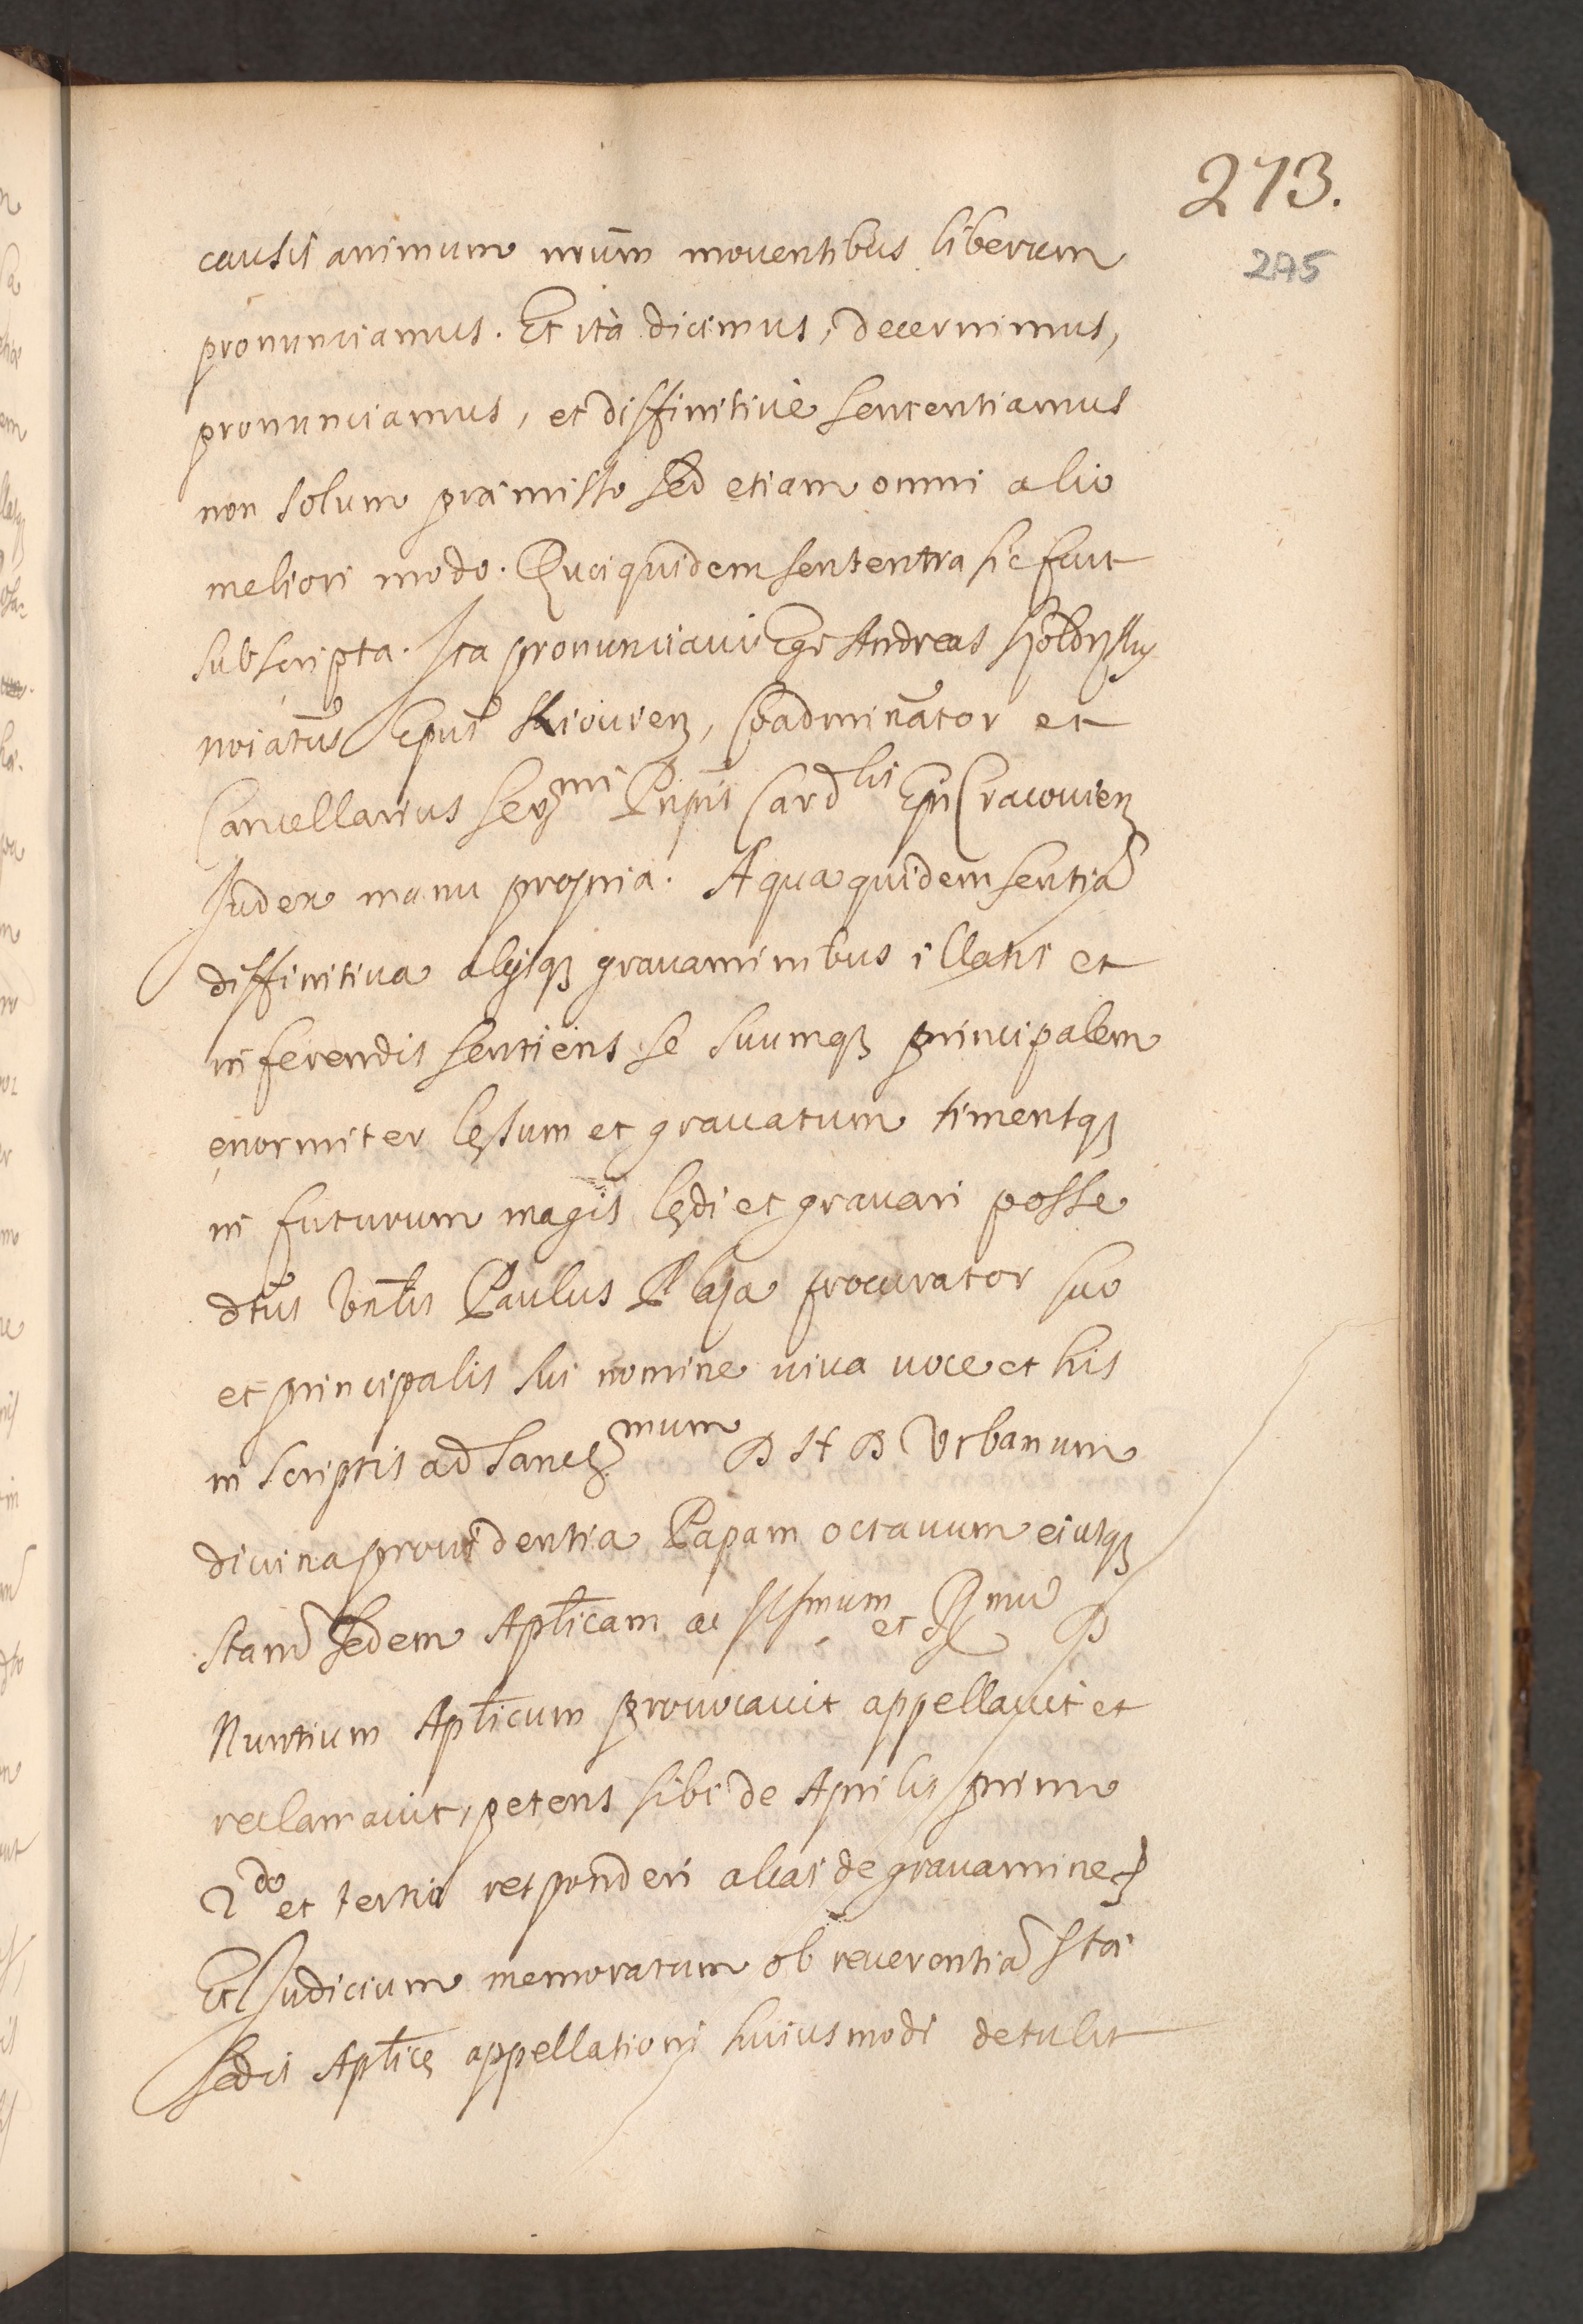 273.
275
causis animum nrūm mouentibus liberum
pronunciamus. Et ità dicimus, decernimus,
pronunciamus, et diffinitiuè sententiamus
non solum præmisso sed etiam omni alio
meliori modo. Quæ quidem sententia sic fuit
subscripta. Ita pronunciaui Ego Andreas
noiatus Epus Kiouien, Coadminator et
Cancellarius Sermi Pnpis Cardlis Epi Cracouien
Judex manu propria. A qua quidem sentia
diffinitiua alijsq grauaminibus illatis et
inferendis sentiens se suumq principalem
enormiter lęsum et grauatum timentq
in futurum magis lędi et grauari posse
dtus Vnlis Paulus Plaza procurator suo
et principalis sui nomine viua uoce et his
in scriptis ad Sanctmum D N D Vrbanum
diuina prouidentia Papam octauum eiusq
stam Sedem Aplicam ac Illmum et Rmu D
Nuntium Aplicum prouocauit appellauit et
reclamauit, petens sibi de Aplis primo
2do et tertio responderi alias de grauamine
Et Judicium memoratum ob reuerentia Stæ
Sedis Aplicę appellationi huiusmodi detulit